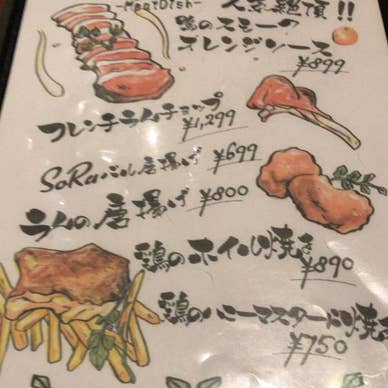 -MeatDish-
人気絶頂!!
鴨のスモーク
オレンジソース
¥899
フレンチラムチョップ
¥1,299
SoRaバル唐揚げ ¥699
ラムの唐揚げ ¥800
鶏のホイル焼き
¥890
鶏のハニーマスタード焼き
¥750